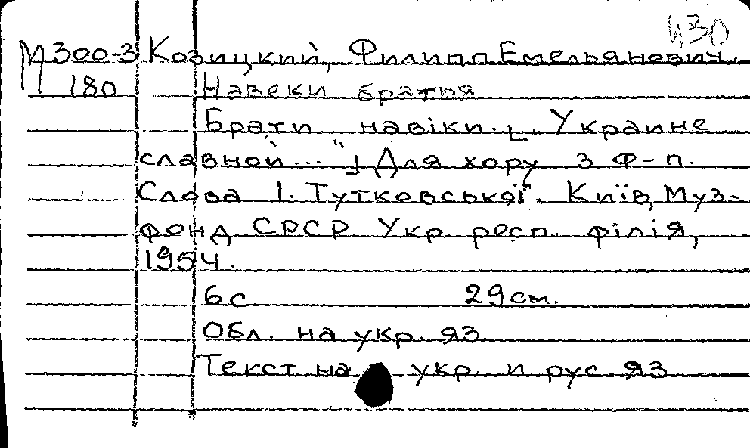 430
М 300-3 Козицкий, Филипп Емельянович.
180 Навеки братья
Брати навіки. [„Украине
славной..."] Для хору з ф-п.
Слова І. Тутковської. Київ, Муз-
фонд СРСР Укр. респ. філія,
1954.
6 с. 29 см.
Обл. на укр. яз
Текст на укр. и рус яз